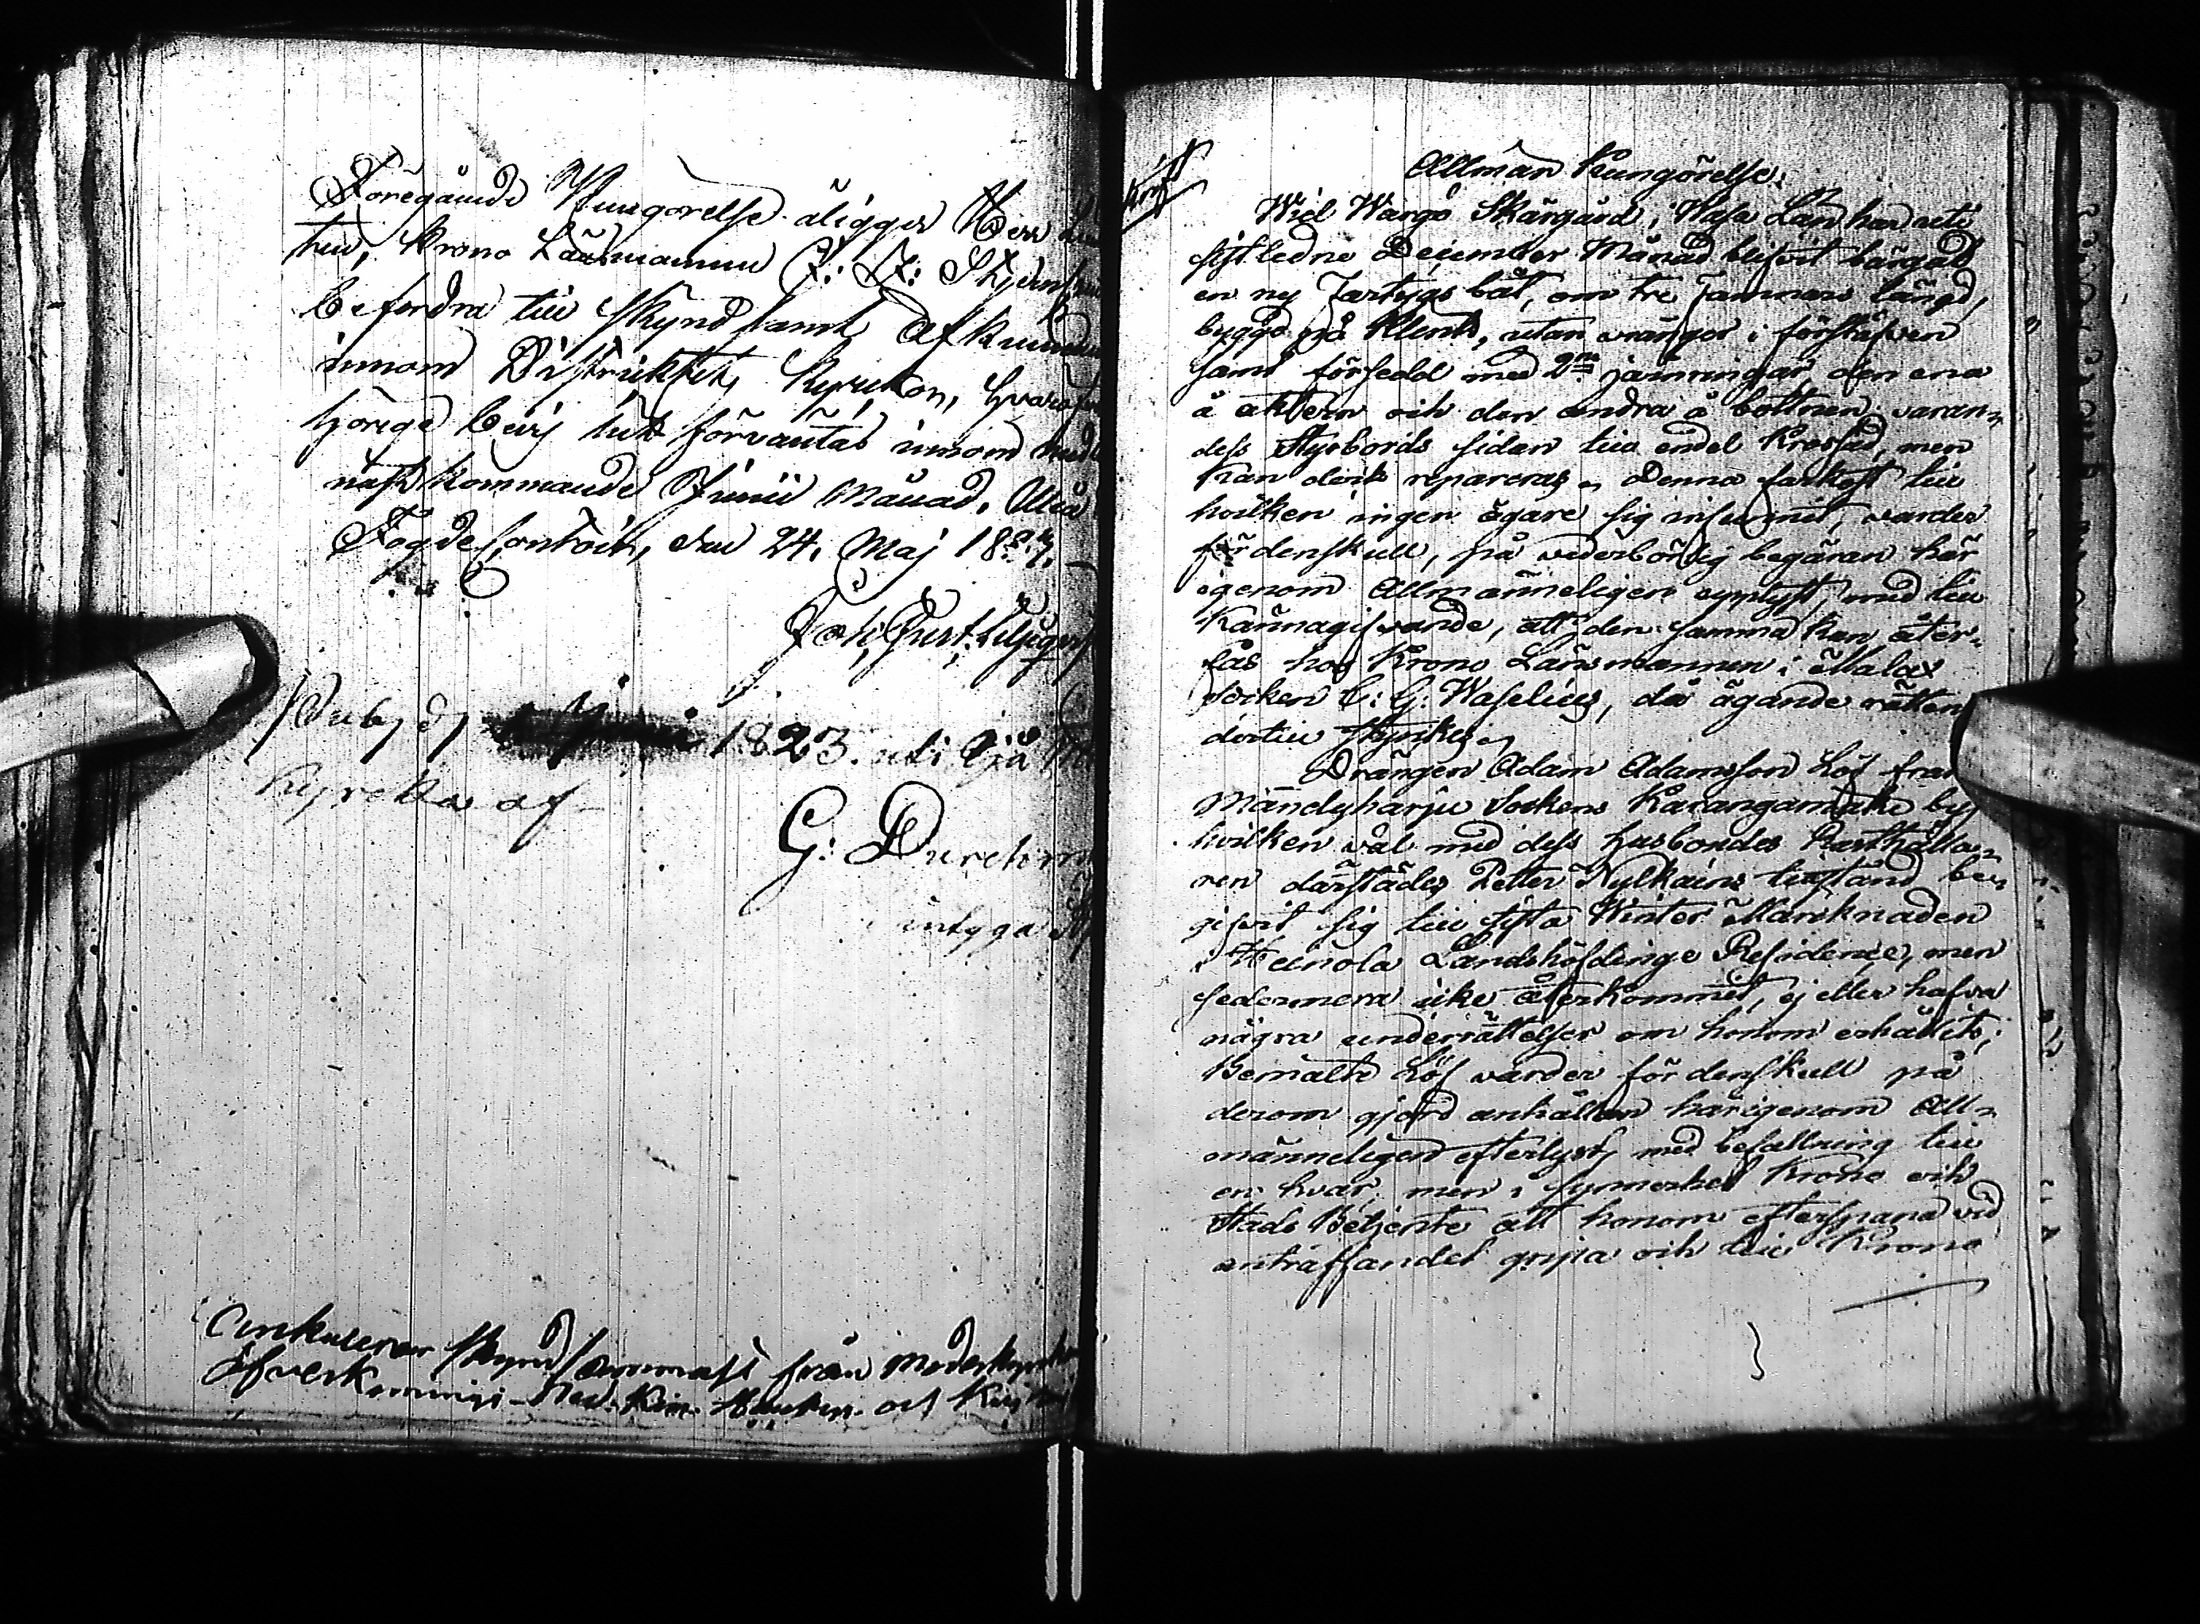 Föregående Kungörelse åligger Herr
Krono Länsmannen
befordra till skynd samt afkunn
innom Distriktets Kyrckor, hvar
hörige bevis hit förväntas innom
näst kommande Junii Månad.
Fogde Contoir, den 24. Maj 18
Joh: Gust:
Publ d 1823. uti
Kyrcka af
G: Durchm
intygar
Cirkulerar skyndsammast från Moderkyrk
Allmän Kungörelse.
Wid Wargö Skärgård i Wasa Län har uti
sistledne December Månad blifvit bärgad
en ny Fartygs båt, om tre famnars längd,
byggd på Klink, utan vrängor i förstäfven
samt försedd med 2ne järnringar den ena
å aktern och den andra å bottnen, varan„
dess Styrbords sidan till endel krossad, men
kan doch repareras. Denna farkost till
hvilken ingen ägare sig infunnit, varder
fördenskull, på vederbörlig begäran här
igenom Allmänneligen upplyst, med till
kännagifvande, att den samma kan åter„
fås hos Krono Länsmannen i Malax
Socken C: G: Waselius, då ägande rätten
dertill styrkes.
Drängen Adam Adamsson Löf från
Mändyharju Sockens by
hvilken väl med dess husbondes Rusthålla„
ren därstädes Petter tillstånd be„
gifvit sig till sista Winter Marknaden
i Heinola Landshöfdinge Residence, men
sedermera icke återkommit, ej eller hafva
några underrättelser om honom erhållits;
Bemälte Löf varder för denskull på
derom gjord anhållan härigenom All„
männeligen efterlyst, med befallning till
en hvar, men i synnerhet Krono och
Stads Betjente att honom efterspana vid
anträffandet gripa och till Krono